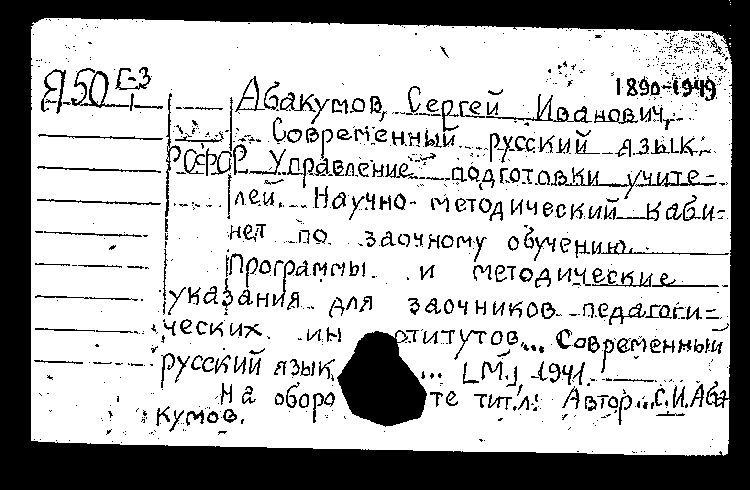 Я50 Г-3
1890-1949
Абакумов, Сергей Иванович,
Современный русский язык.
РСФСР. Управление подготовки учите-
лей. Научно-методический каби-
нет по заочному обучению.
Программы и методические
указания для заочников педагоги-
ческих ин ститутов... Современный
русский язык ... [М.], 1941.
На оборо те тит.л.: Автор...С.И.Аба
кумов.